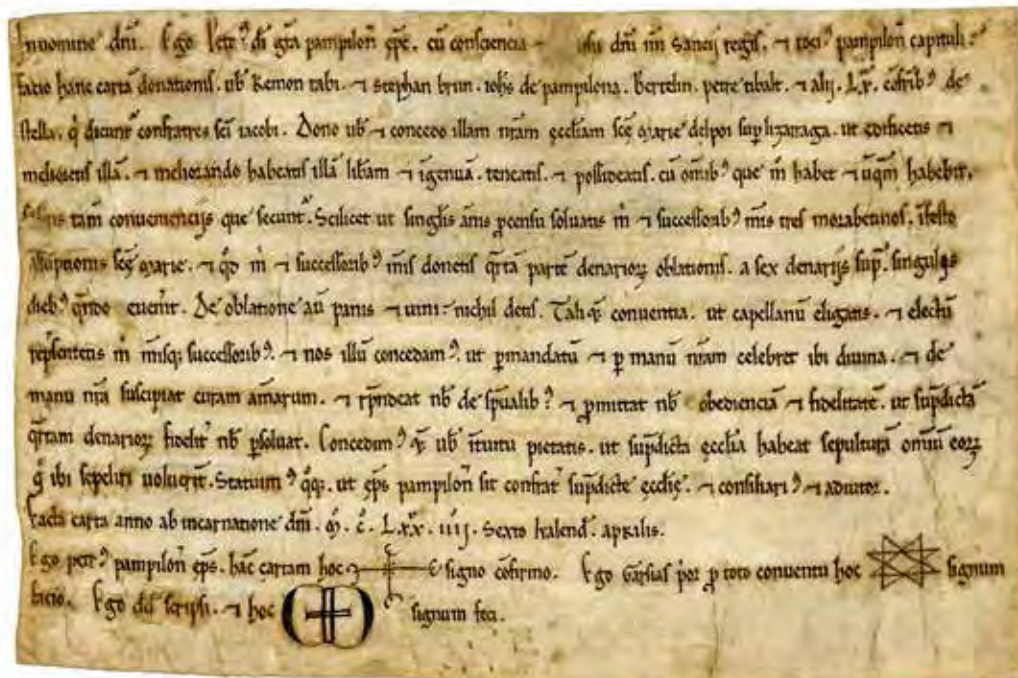 In nomine dñi. Ego Petrꝰ di gr̃a pampilon̄ ep̄c. cū consciencia ⁊ dñi nr̃i Sancij regis. ⁊ tociꝰ pampilon̄ capituli.
facio hanc cartā donationis. ub̄ Remon rabi. ⁊ Stephan brun. ioh̄s de pampilona. bertelin. petre tibalt. ⁊ alij. Lx̄. cōfrib⁹ de
stella. q̇ dicunt̃ confratres sc̄i iacobi. Dono ub̄ ⁊ concedo illam nr̄am ęccl̄iam sc̄ę Marie delpoi sup̱ lizarraga. ut edificetis ⁊
melioretis illā. ⁊ meliorando habeatis illā lib̄am ⁊ īgenuā. teneatis. ⁊ possideatis. cū om̄ib⁹ que m̊ habet ⁊ ūq̃m habebit.
tam conueniencijs que secunt̃. Scilicet ut singl̄is ānis p̱censu soluatis m̊ ⁊ successorib⁹ m̄is tres morabetinos. ī festo
assūptionis sc̄ę Marie. ⁊ qd̄ m̊ ⁊ successorib⁹ m̄is donetis q̄rtā partē denarioꝝ oblationis. a sex denarijs sup̱. singulis
dieb⁹ q̄ndo euen̄it. De oblatione aū panis ⁊ uini nichil detis. Tali q̱ conuentia. ut capellanū eligatis. ⁊ electū
rep̄sentetis m̊ m̄isq; successorib⁹. ⁊ nos illū concedam⁹. ut p̱mandatū ⁊ p̱ manū nr̄am celebret ibi diuina. ⁊ de
manu nr̄a suscipiat curam am̄arum. ⁊ rp̄ndeat nb̄ de sp̄ualib⁹. ⁊ p̱mittat nb̄ obedienciā ⁊ fidelitatē. ut sup̄dictā
q̄rtam denarioꝝ fidelit̃ nb̄ p̱soluat. Concedim⁹ q̱ ub̄ ītuitu pietatis. ut sup̄dicta ęccl̄ia habeat sepulturā om̄iū eoꝝ
q̇ ibi sepeliri uoluer̄it. Statuim⁹ q̊q;. ut ep̄s pampilon̄ sit confrat̃ sup̄dicte ęccl̄ię. ⁊ consiliari⁹ ⁊ adiutor.
facta carta anno ab incarnatione dñi. M̊. C̊. Lxx̊. iiij. Sexto kalend̄. aprilis.
Ego petr⁹ pampilon̄ ep̄s. hāc cartam hoc signo cōfirmo. Ego Garsias p̊or p̱ toto conuentu hoc signum
facio. Ego scripsi. ⁊ hoc signum feci.